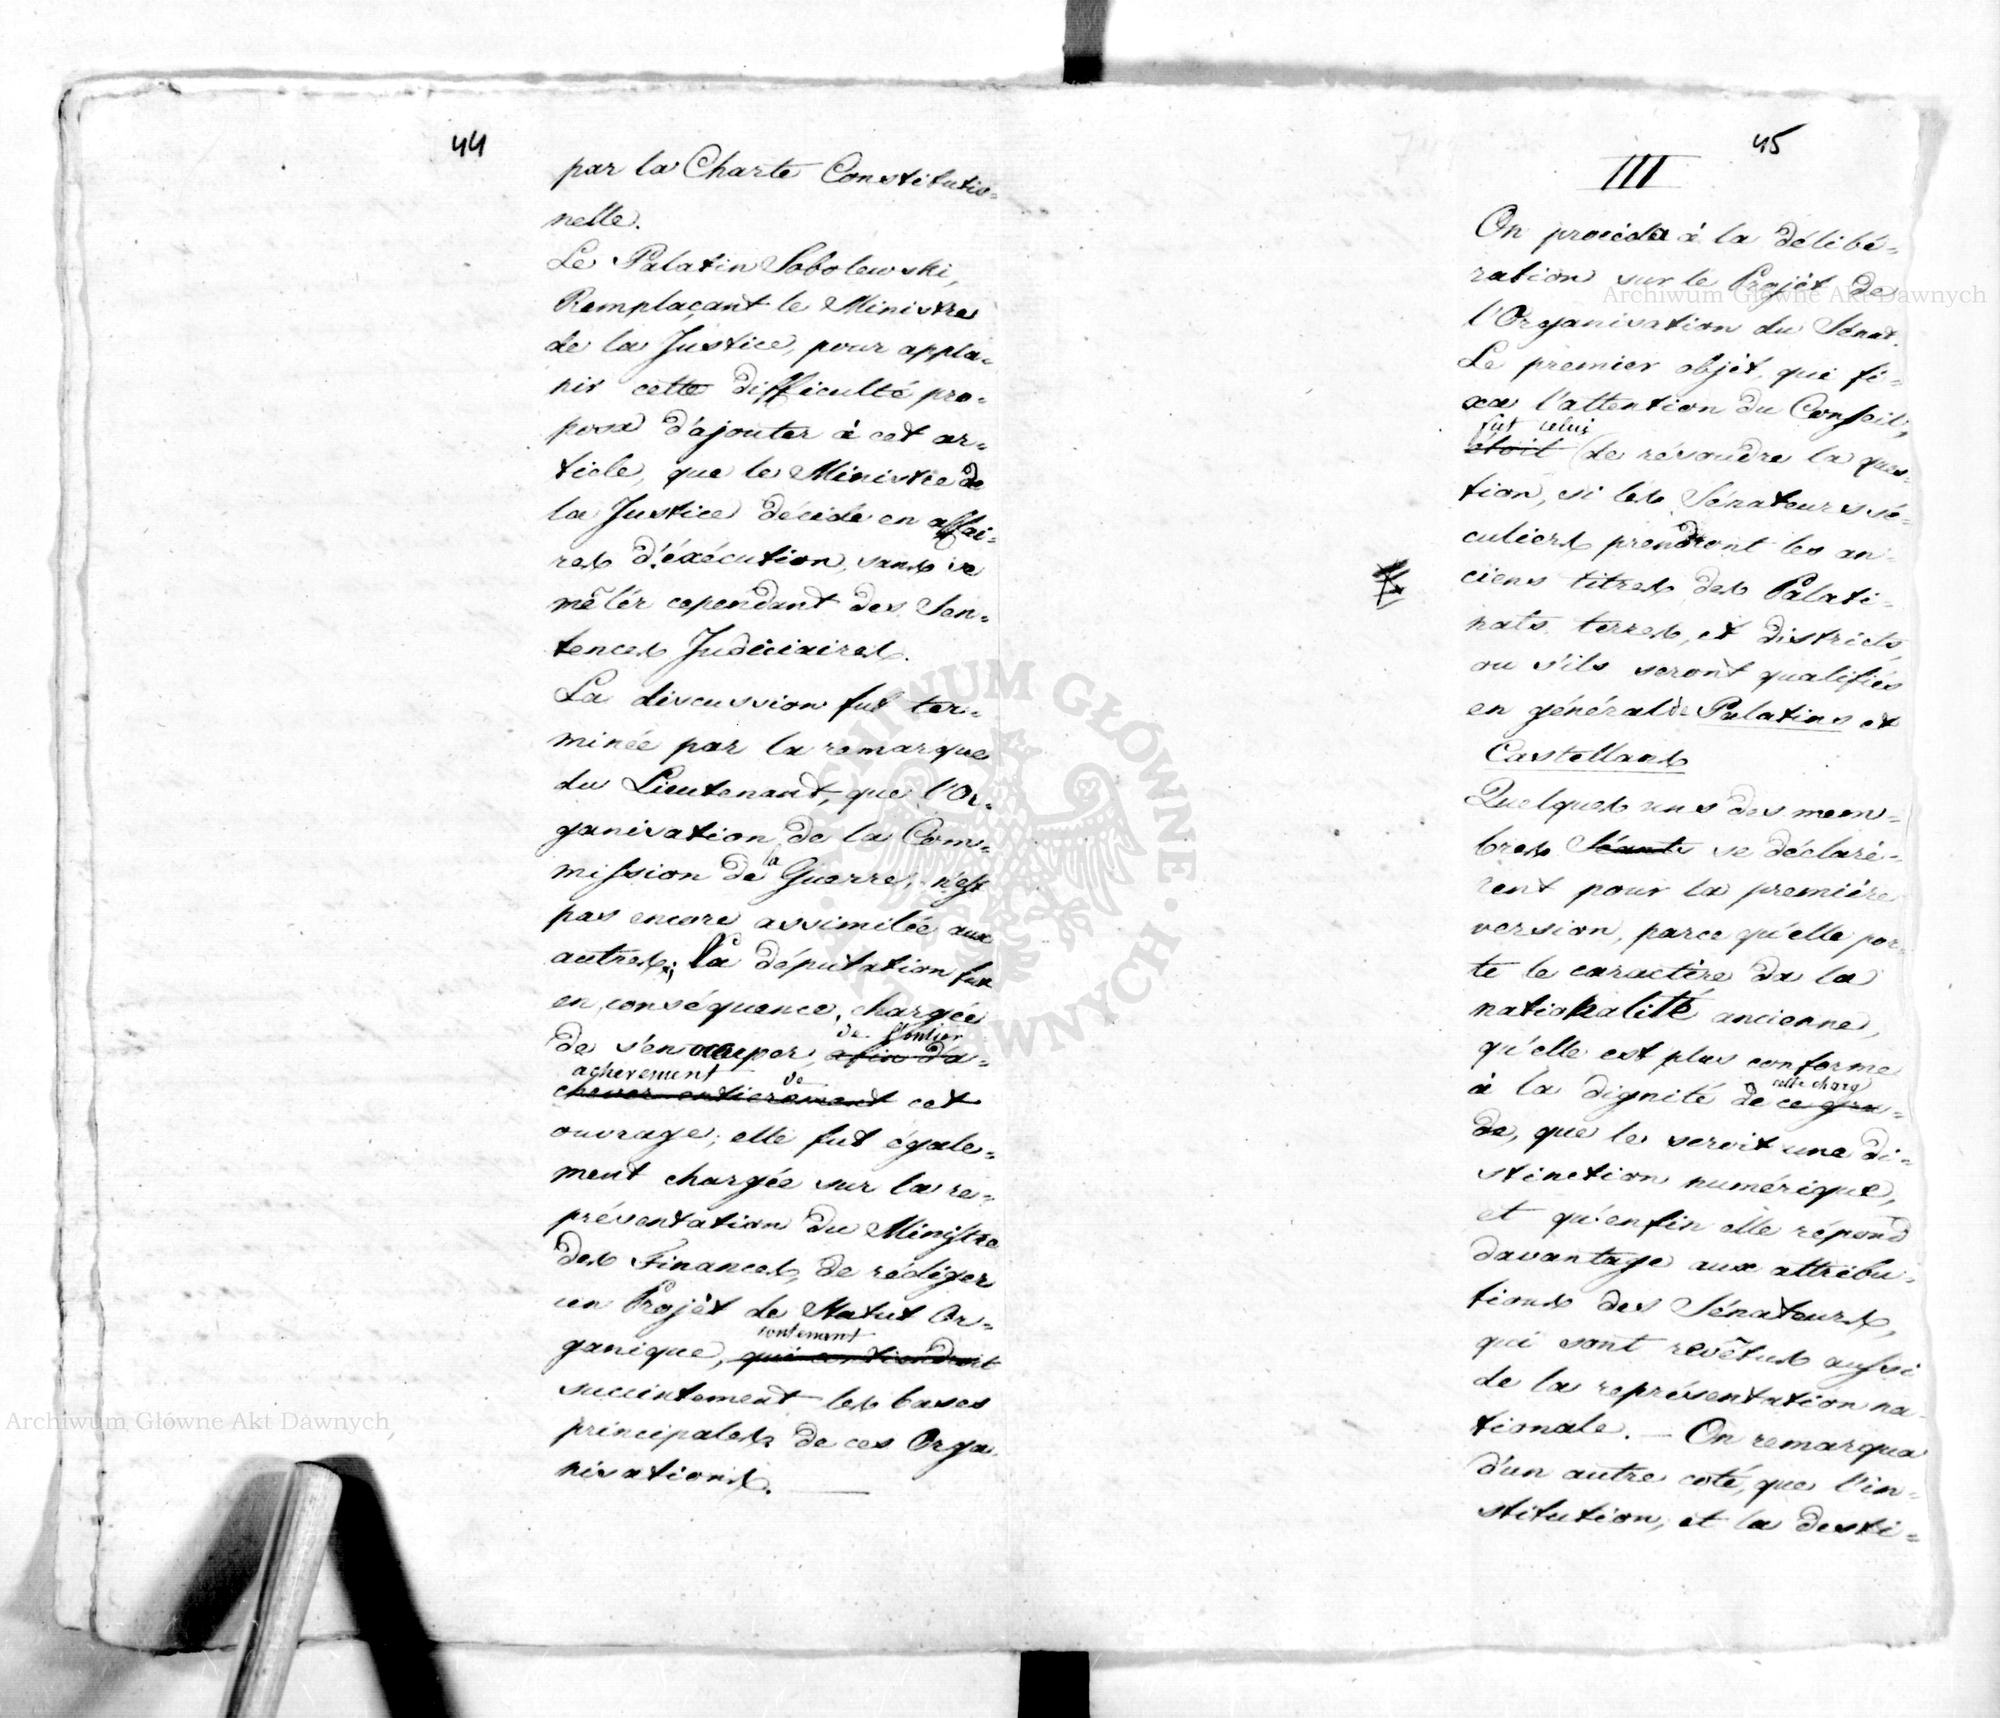 44
par la Charte Constitutio-
nelle.
Le Palatin Sobolewski,
Remplaçant le Ministre
de la Justice, pour appla-
nir cette difficulté pro-
posa d'ajouter à cet ar-
ticle, que le Ministre de
la Justice décide en affai-
res d'éxécution, sans se
mêlér cependant des Sen-
tences Judiciaires.
La discussion fut ter-
minée par la remarque
du Lieutenant, que l'Or-
ganisation de la Com-
mission de la Guerre, n'est
pas encore assimilée aux
autres; la députation fut
en conséquence, chargée
de l'entier
de s'en occuper, afin d'a-
achevement de
chever entierement cet
ouvrage; elle fut égale-
ment chargée sur la re-
présentation du Ministre
des Finances, de rédiger
un Projèt de Statut Or-
contenant
ganique, qui contiendroit
succintement les bases
principales de ces Orga-
nisations.
45
III
On procéda à la délibé-
ration sur le Projèt de
l'Organisation du Sénat.
Le premier objèt, qui fi-
xa l'attention du Conseil,
fut celui
étoit de résoudre la ques-
tion, si les Sénateurs sé-
culiers prendront les an-
ciens titres des Palati-
nats, terres, et districts,
ou s'ils seront qualifiés
en général de Palatins et
Castellans
Quelques uns des mem-
bres Séants se déclaré-
rent pour la première
version, parce qu'elle por-
te le caractère de la
nationalité ancienne,
qu'elle est plus conforme
cette charge
à la dignité de ce gra-
de, que le seroit une di-
stinction numérique,
et qu'enfin elle répond
davantage aux attribu-
tions des Sénateurs,
qui sont revêtus aussi
de la représentation na-
tionale. — On remarqua
d'un autre coté, que l'in-
stitution, et la desti-
Archiwum Główne Akt Dawnych
Archiwum Główne Akt Dawnych
ARCHIWUM GŁÓWNE AKT DAWNYCH